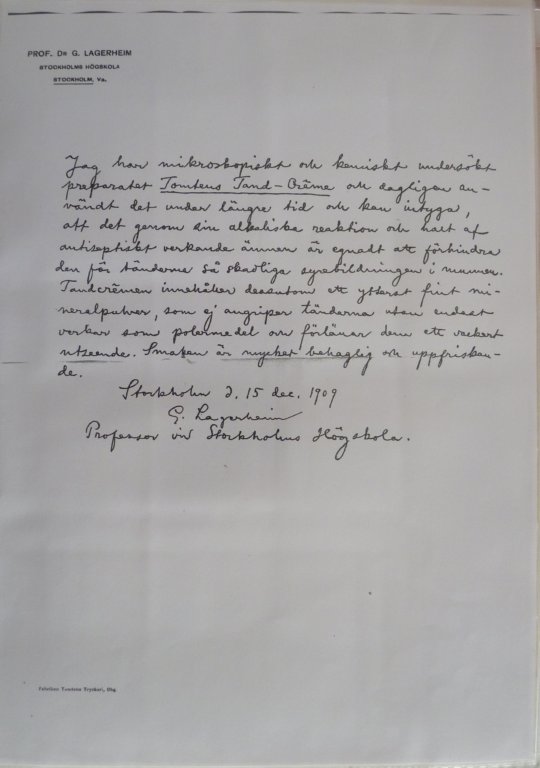 PROF. DR G. LAGERHEIM
STOCKHOLMS HÖGSKOLA
STOCKHOLM, Va.
Jag har mikroskopiskt och kemiskt undersökt
preparatet Tomtens Tand-Crême och dagligen an-
vändt det under längre tid och kan intyga,
att det genom sin alkaliska reaktion och halt af
antiseptiskt verkande ämnen är egnadt att förhindra
den för tänderna så skadliga syrebildningen i munnen.
Tandcrêmen innehåller dessutom ett ytterst fint mi-
neralpulver, som ej angriper tänderna utan endast
verkar som polermedel och förlänar dem ett vackert
utseende. Smaken är mycket behaglig och uppfriskan-
de.
Stockholm d. 15 dec. 1909
G. Lagerheim
Professor vid Stockholms Högskola.
Fabriken Tomtens Tryckeri, Gbg.